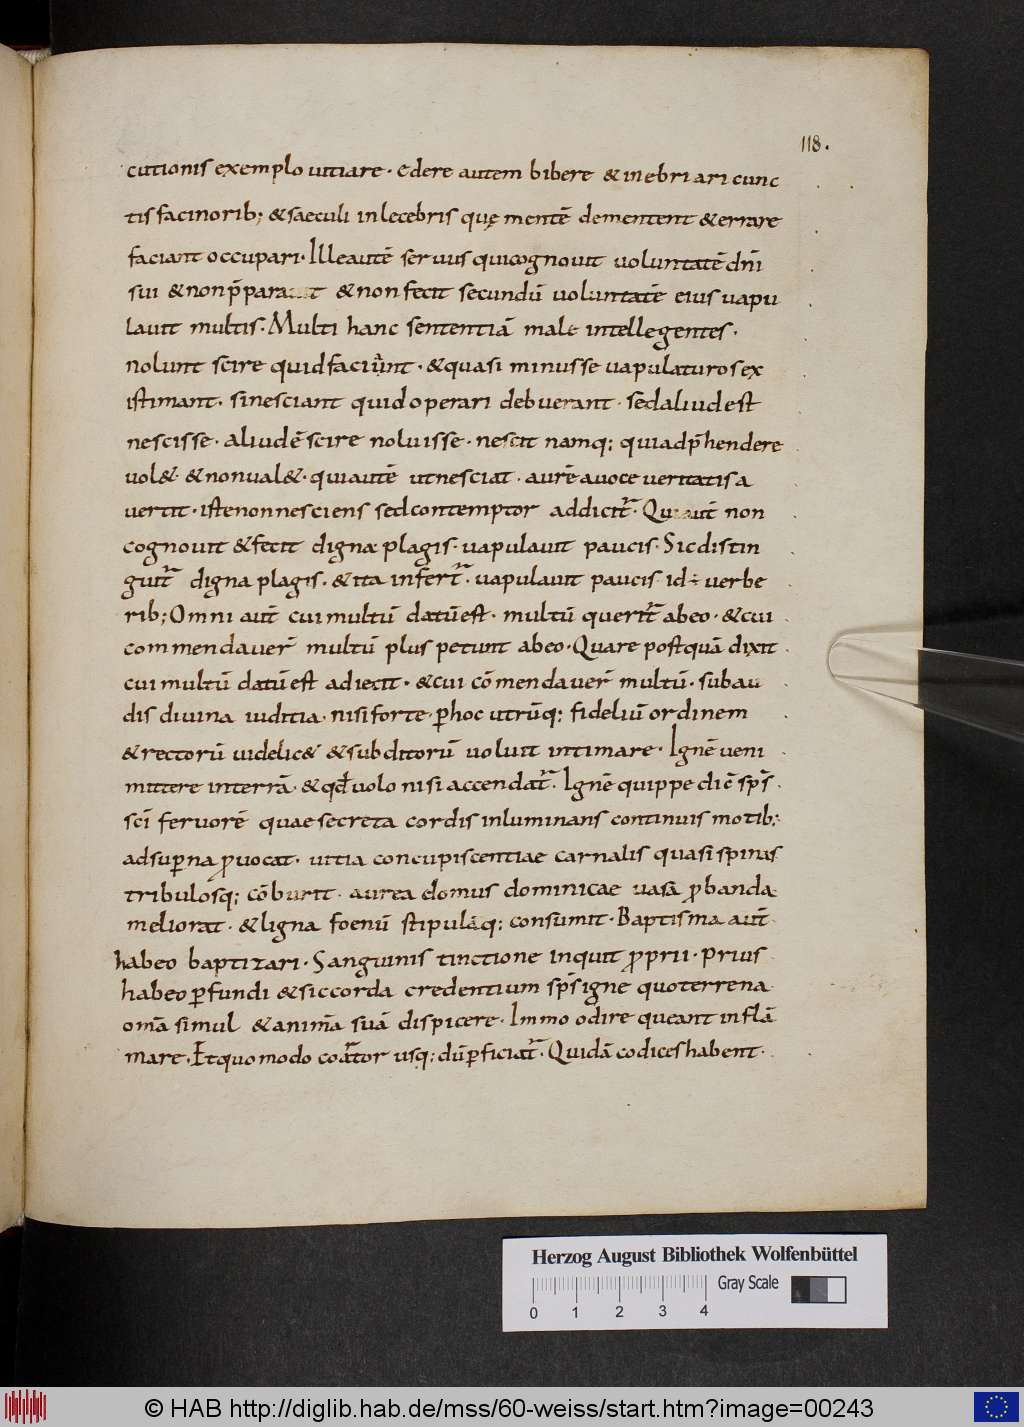 118.
cutionis exemplo uitiare. edere autem bibere & inebriari cunc
tis facinorib; & saeculi inlecebris quę mentē dementent & errare
faciant occupari. Ille autē seruus qui cognouit uoluntatē dn̄i
sui & non p̄parauit & non fecit secundū uoluntatē eius uapu
lauit multis. Multi hanc sententiā male intellegentes.
nolunt scire quid faciunt. & quasi minus se uapulaturos ex
istimant. si nesciant quid operari debuerant. sed aliud est
nescisse. aliud ē scire noluisse. nescit namq; qui adp̄hendere
uol&. & non ual&. qui autē ut nesciat. aurē a uoce ueritatis a
uertit. iste non nesciens sed contemptor addicit̄. Qui aut̄ non
cognouit & fecit digna plagis. uapulauit paucis. Sic distin
guit̄ digna plagis. & ita infert̄. uapulauit paucis id ÷ uerbe
rib; Omni aut̄ cui multū datū est. multū querit̄ ab eo. & cui
commendauer̄ multū plus petunt ab eo. Quare postquā dixit
cui multū datū est adiecit. & cui cōmendauer̄ multū. subau
dis diuina iuditia. nisi forte. ꝑ hoc utrūq; fideliū ordinem
& rectorū uidelic& & subditorū uoluit intimare. Ignē ueni
mittere in terrā. & qđ uolo nisi accendat̄. Ignē quippe dic̄ sps̄
sc̄i feruorē quae secreta cordis inluminans continuis motib;
ad suꝑna ꝓuocat. uitia concupiscentiae carnalis quasi spinas
tribulosq; cōburit. aurea domus dominicae uasa ꝓbanda
meliorat. & ligna foenū stipulāq; consumit. Baptisma aut̄
habeo baptizari. Sanguinis tinctione inquit ꝓprii. prius
habeo ꝑfundi & sic corda credentium sps̄ igne quo terrena
omā simul & animā suā dispicere. Immo odire queant inflā
mare. Et quomodo coart̄or usq; dū ꝑficiat̄. Quidā codices habent.
Herzog August Bibliothek Wolfenbüttel
Gray Scale
0 1 2 3 4
© HAB http://diglib.hab.de/mss/60-weiss/start.htm?image=00243